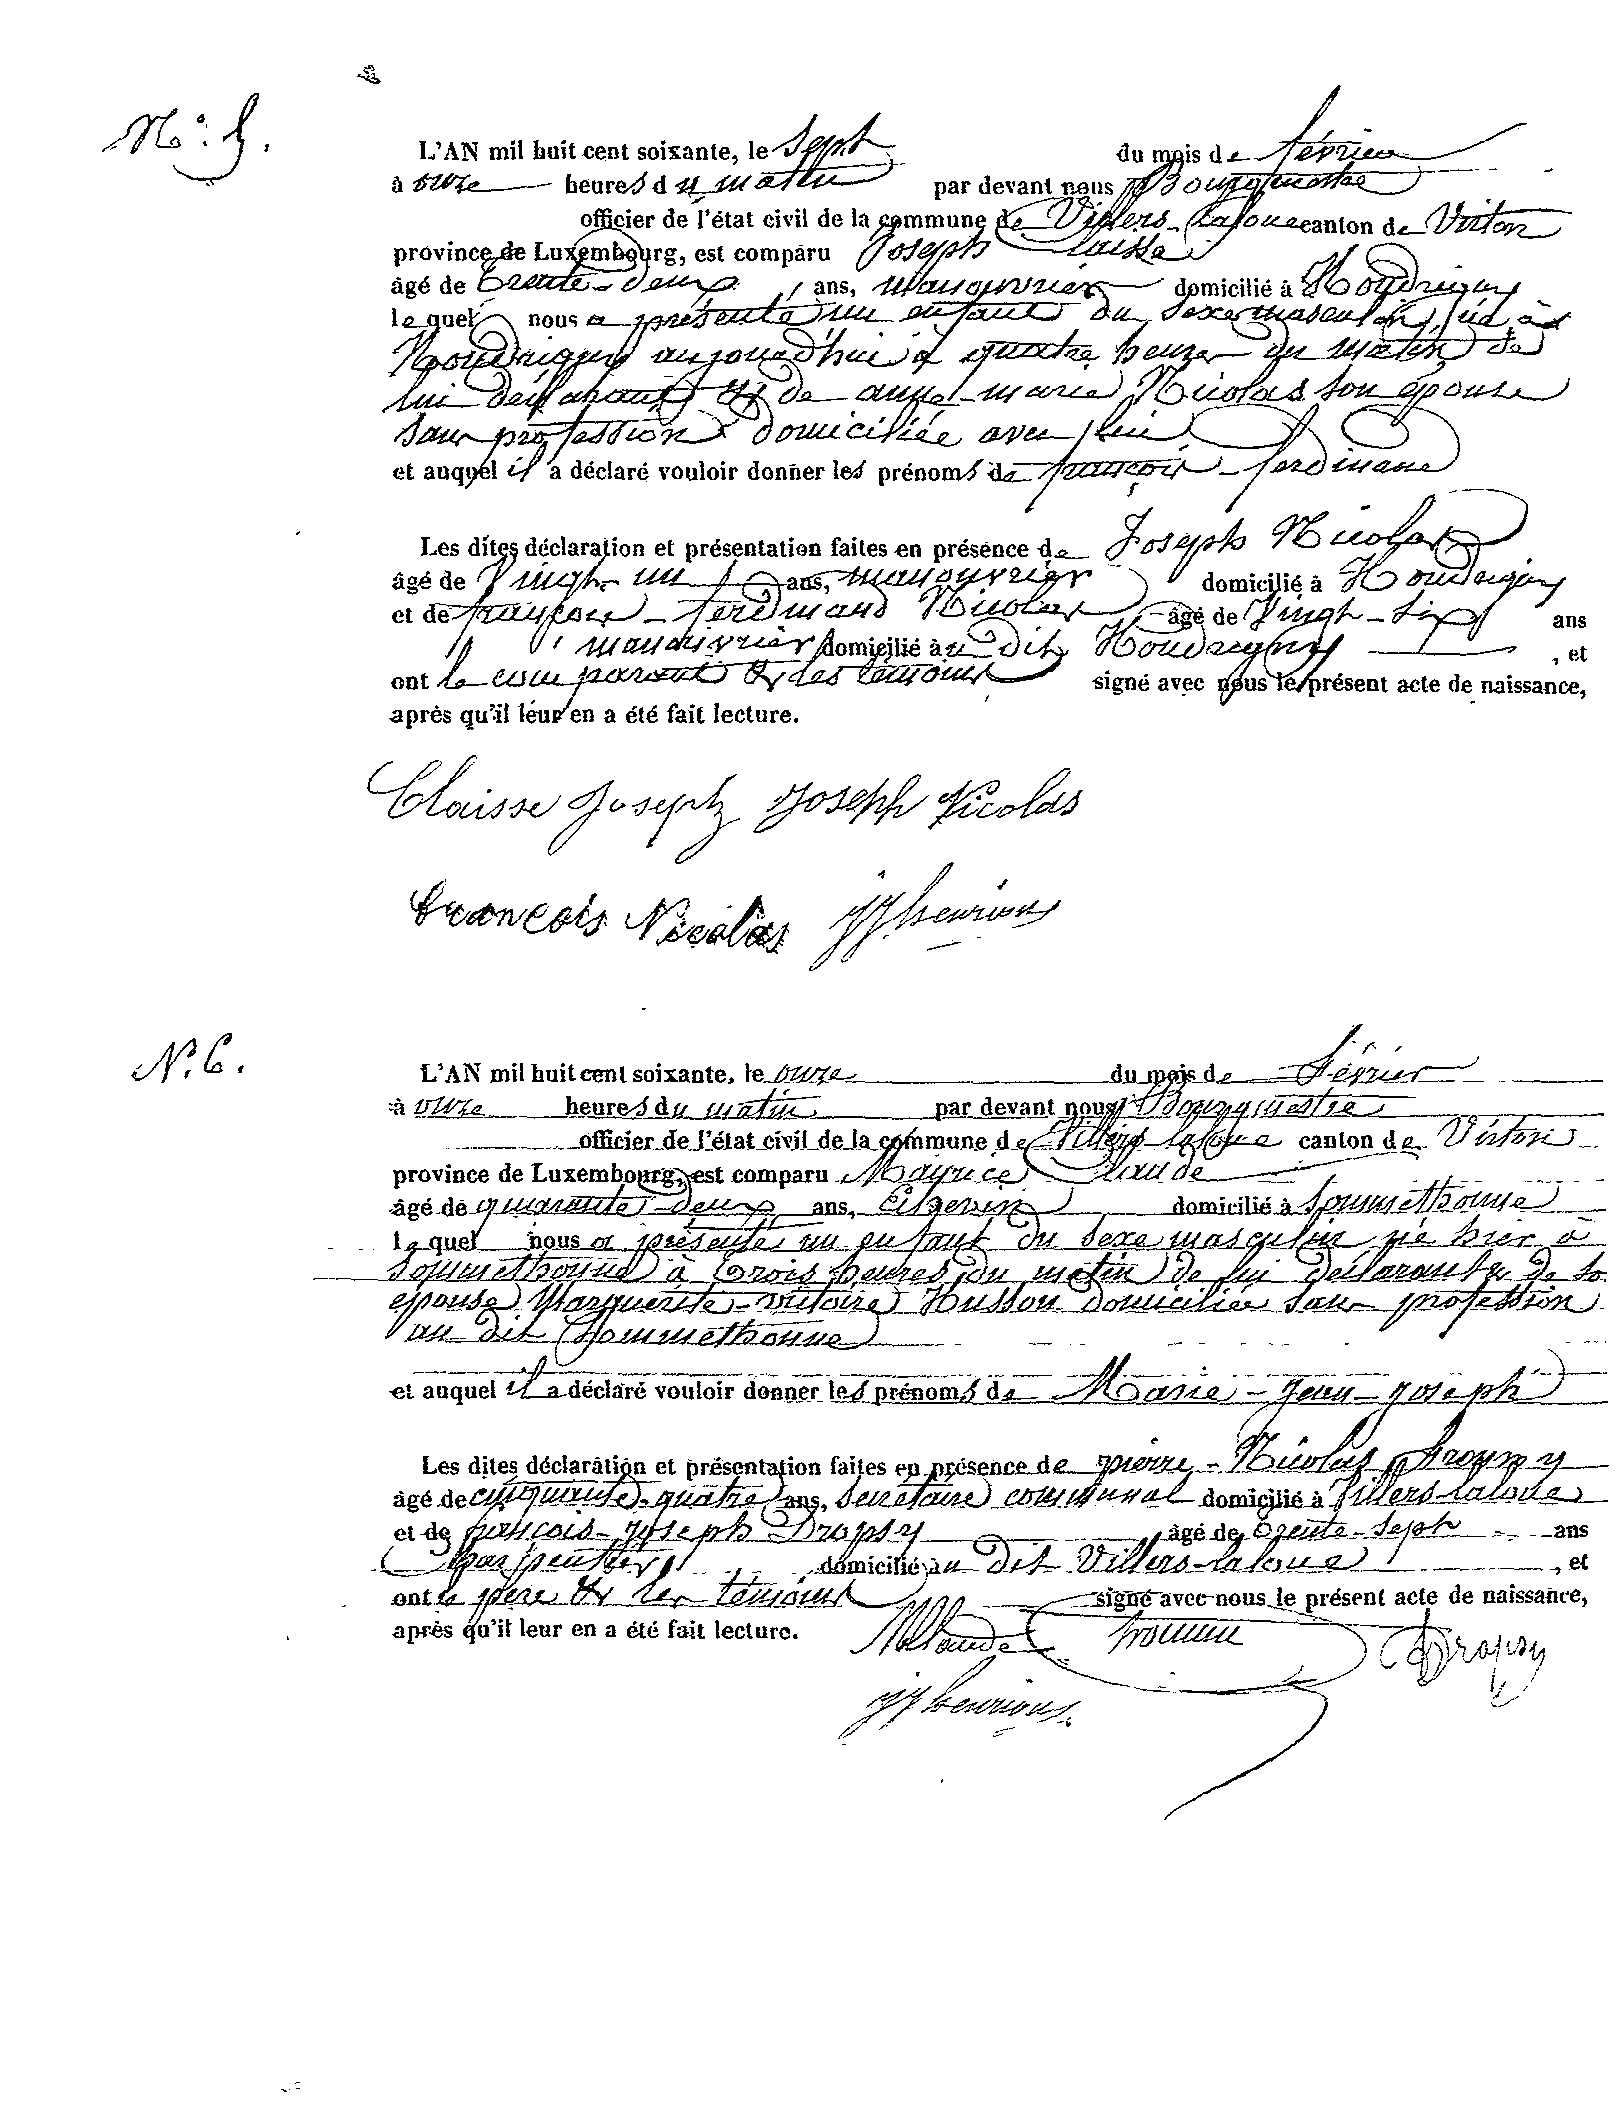 N.° 5.
L'AN mil huit cent soixante, le Sept du mois de février
à onze heures du matin par devant nous Bourgmestre
officier de l'état civil de la commune de Villers-laloue canton de Virton
province de Luxembourg, est comparu Joseph Claisse
âgé de trente-deux ans, manouvrier domicilié à Houdrigny
lequel nous a présenté un enfant du sexe masculin, né à
Houdrigny aujourd'hui à quatre heures du matin de
lui déclarant & de anne-marie Nicolas son épouse
sans profession domiciliée avec lui
et auquel il a déclaré vouloir donner les prénoms de françois-ferdinand
Les dites déclaration et présentation faites en présence de Joseph Nicolas
âgé de Vingt-un ans, manouvrier domicilié à Houdrigny
et de françois-ferdinand Nicolas âgé de Vingt-six ans
manouvrier domicilié au dit Houdrigny , et
ont le comparant & les témoins signé avec nous le présent acte de naissance,
après qu'il leur en a été fait lecture.
Claisse Joseph Joseph Nicolas
francois Nicolas JJ henrion
N. 6.
L'AN mil huit cent soixante, le onze du mois de février
à onze heures du matin par devant nous Bourgmestre
officier de l'état civil de la commune de Villers-laloue canton de Virton
province de Luxembourg, est comparu Maurice Claude
âgé de quarante-deux ans, Echevin domicilié à Sommethonne
lequel nous a présenté un enfant du sexe masculin né hier à
Sommethonne à trois heures du matin de lui déclarant & de so
épouse Marguerite-victoire Husson domiciliée sans profession
au dit Sommethonne
et auquel il a déclaré vouloir donner les prénoms de Marie-Jean-Joseph
Les dites déclaration et présentation faites en présence de pierre-Nicolas
âgé de cinquante-quatre ans, Secrétaire communal domicilié à Villers-laloue
et de françois-Joseph Dropsy âgé de trente-sept ans
Charpentier domicilié au dit Villers-laloue , et
ont le père & les témoins signé avec nous le présent acte de naissance,
après qu'il leur en a été fait lecture.
MClaude Dropsy
JJ henrion